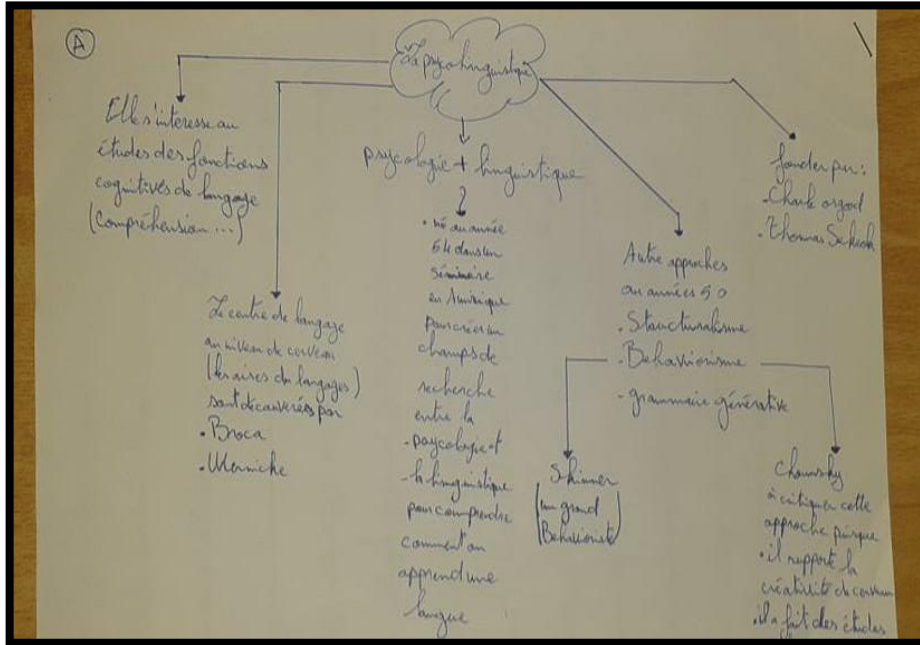 A
La psycolinguistique
Elle s'interesse au
études des fonctions
cognitives de langage
(compréhension ...)
Le centre de langage
au niveau de cerveau
(les aires du langages)
sont décauverées par
. Broca
. Wernicke
psycologie + linguistique
. né au année
54 dans un
séminaire
en Amérique
pour créer un
champs de
recherche
entre la
- psycologie et
- la linguistique
pour comprendre
comment on
apprend une
langue
Autre approches
au années 50
. Structuralisme
- Behaviorisme
- grammaire générative
Skinner
(un grand
Behavioriste)
Chomsky
à critiquer cette
approche puisque
. il support la
créativité de cerveau
. il a fait des études
fonder par :
- Chark osgood
- Thomas Sebeok